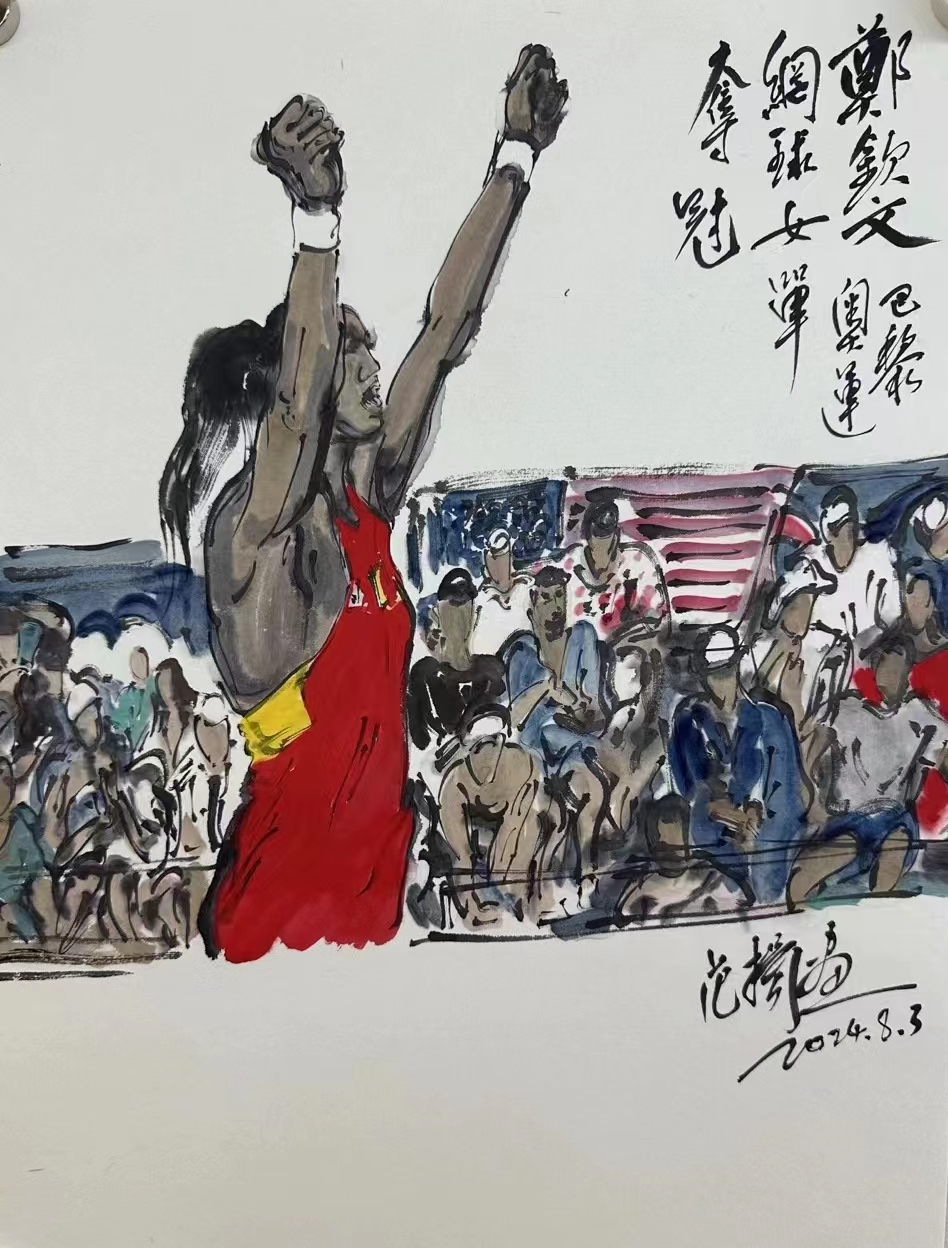 鄭欽文
巴黎
奧運
網球女單
奪冠
范
2024.8.3